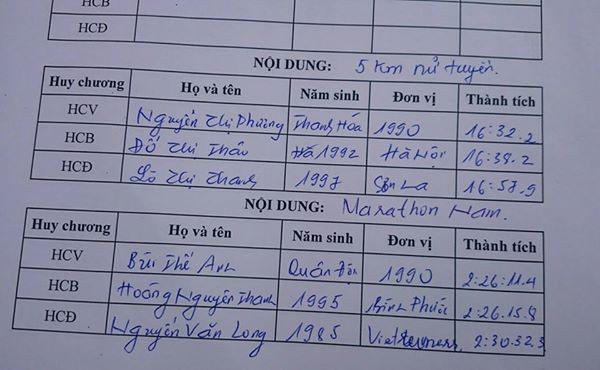 HCB
HCĐ
NỘI DUNG: 5 Km nử tuyển.
Huy chương Họ và tên Năm sinh Đơn vị Thành tích
HCV Nguyễn Thị Phương Thanh Hóa 1990 16:32.2
HCB Đỗ Thị Thảo 1992 Hà Nội 16:38.2
HCĐ Lò Thị Thanh 1997 Sơn La 16:57.9
NỘI DUNG: Marathon Nam.
Huy chương Họ và tên Năm sinh Đơn vị Thành tích
HCV Bùi Thế Anh Quân Đội 1990 2:26:11.4
HCB Hoàng Nguyên Thanh 1995 Bình Phước 2:26.15.8
HCĐ Nguyễn Văn Long 1985 2:30.32.3